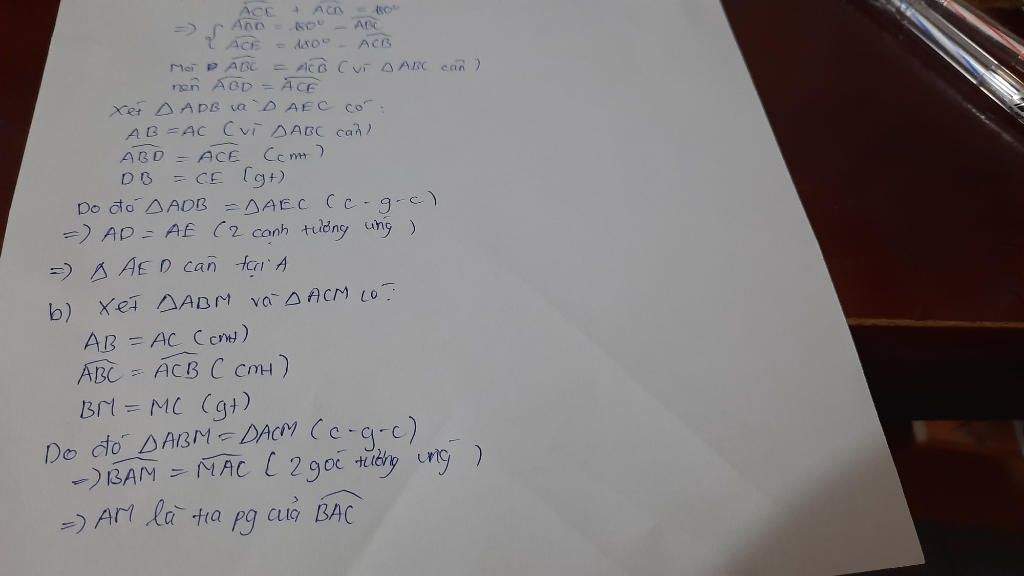 ACE + ACB = 180°
=> { ABD = 180° - ABC
ACE = 180° - ACB
Mà ABC = ACB (vì △ABC cân)
nên ABD = ACE
Xét △ADB và △AEC có:
AB = AC (vì △ABC cân)
ABD = ACE (cmt)
DB = CE (gt)
Do đó △ADB = △AEC (c-g-c)
=> AD = AE (2 cạnh tương ứng)
=> △AED cân tại A
b) Xét △ABM và △ACM có:
AB = AC (cmt)
ABC = ACB (cmt)
BM = MC (gt)
Do đó △ABM = △ACM (c-g-c)
=> BAM = MAC (2 góc tương ứng)
=> AM là tia pg của BAC